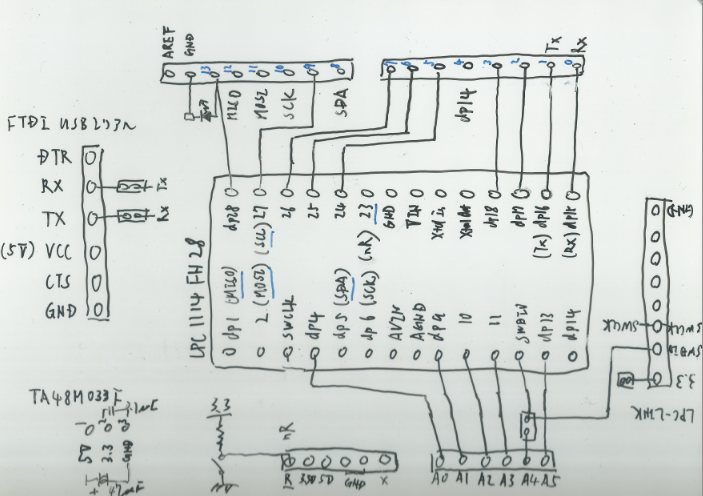 AREF
GND
13 12 11 10 9 8
MISO
MOSI
SCK
SDA
7 6 5 4 3 2 1 0
dp14
Tx
Rx
FTDI USB
DTR
RX
Tx
TX
Rx
(5V) VCC
CTS
GND
LPC1114FH28
dp28 27 26 25 24 23 GND VIN xtalin xtalout dp18 dp17 dp16 dp15
(SCL) (nR) (Tx) (Rx)
dp1 2 SWCLK dp4 dp5 dp6 AVIN AGND dp9 10 11 SWDIO dp13 dp14
(MISO) (MOSI) (SDA) (SCK)
GND
SWCLK
SWCLK
SWDIO
3.3
LPC-LINK
TA48M033F
1 2 3
5V 3.3 GND
+ 47uF
3.3
nR
R 3.3V 5V GND X
A0 A1 A2 A3 A4 A5